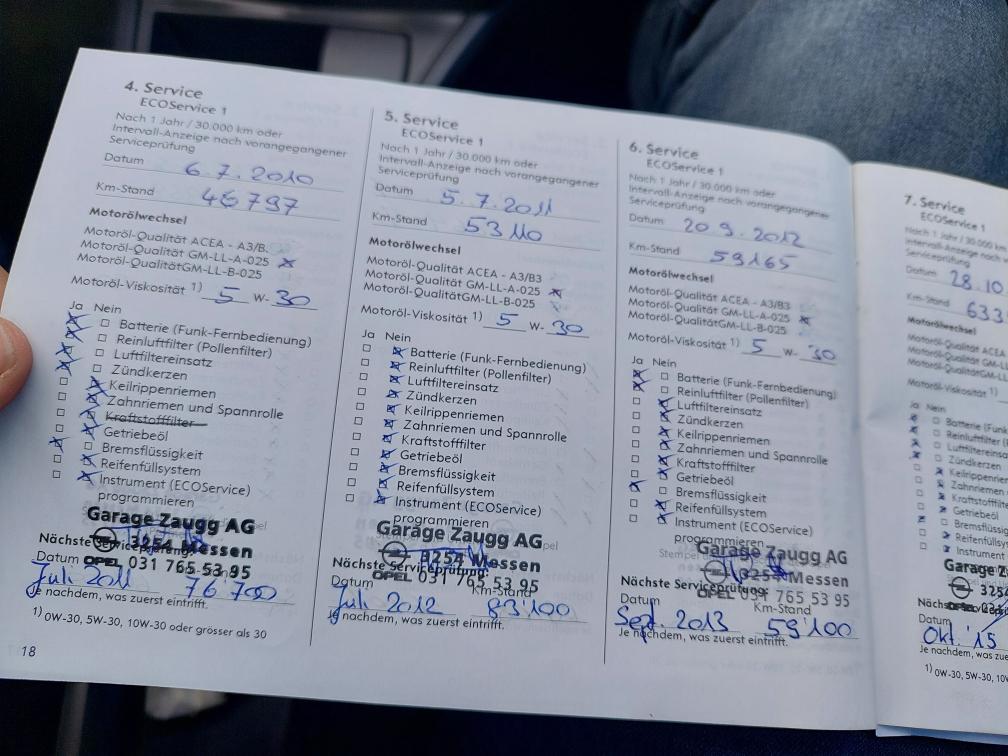 4. Service
ECOService 1
Nach 1 Jahr / 30.000 km oder
Intervall-Anzeige nach vorangegangener
Serviceprüfung
Datum 6.7.2010
Km-Stand 46797
Motorölwechsel
Motoröl-Qualität ACEA - A3/B.
Motoröl-Qualität GM-LL-A-025
MotorölQualitätGM-LL-B-025
Motoröl-Viskosität 1) 5 W- 30
Ja Nein
Batterie (Funk-Fernbedienung)
Reinluftfilter (Pollenfilter)
Luftfiltereinsatz
Zündkerzen
Keilrippenriemen
Zahnriemen und Spannrolle
Kraftstofffilter
Getriebeöl
Bremsflüssigkeit
Reifenfüllsystem
Instrument (ECOService)
programmieren
Garage Zaugg AG
3254 Messen
Nächste Serviceprüfung:
OPEL 031 765 53 95
Datum
Juli 2011 76'700
Je nachdem, was zuerst eintrifft.
1) 0W-30, 5W-30, 10W-30 oder grösser als 30
18
5. Service
ECOService 1
Nach 1 Jahr / 30.000 km oder
Intervall-Anzeige nach vorangegangener
Serviceprüfung
Datum 5.7.2011
Km-Stand 53110
Motorölwechsel
Motoröl-Qualität ACEA - A3/B3
Motoröl-Qualität GM-LL-A-025
MotorölQualitätGM-LL-B-025
Motoröl-Viskosität 1) 5 W- 30
Ja Nein
Batterie (Funk-Fernbedienung)
Reinluftfilter (Pollenfilter)
Luftfiltereinsatz
Zündkerzen
Keilrippenriemen
Zahnriemen und Spannrolle
Kraftstofffilter
Getriebeöl
Bremsflüssigkeit
Reifenfüllsystem
Instrument (ECOService)
programmieren
Garage Zaugg AG
3254 Messen
Nächste Serviceprüfung:
OPEL 031 765 53 95
Datum Km-Stand
Juli 2012 83'100
Je nachdem, was zuerst eintrifft.
6. Service
ECOService 1
Nach 1 Jahr / 30.000 km oder
Intervall-Anzeige nach vorangegangener
Serviceprüfung
Datum 20 9.2012
Km-Stand 59165
Motorölwechsel
Motoröl-Qualität ACEA - A3/B3
Motoröl-Qualität GM-LL-A-025
MotorölQualitätGM-LL-B-025
Motoröl-Viskosität 1) 5 W- 30
Ja Nein
Batterie (Funk-Fernbedienung)
Reinluftfilter (Pollenfilter)
Luftfiltereinsatz
Zündkerzen
Keilrippenriemen
Zahnriemen und Spannrolle
Kraftstofffilter
Getriebeöl
Bremsflüssigkeit
Reifenfüllsystem
Instrument (ECOService)
programmieren
Stempel
Garage Zaugg AG
3254 Messen
Nächste Serviceprüfung:
OPEL 031 765 53 95
Datum Km-Stand
Sept. 2013 59'100
Je nachdem, was zuerst eintrifft.
7. Service
ECOService 1
Nach 1 Jahr / 30.000
Intervall-Anzeige nach
Serviceprüfung
Datum 28.10.
Km-Stand 633
Motorölwechsel
Motoröl-Qualität ACEA
Motoröl-Qualität GM-L
MotorölQualitätGM-LL
Motoröl-Viskosität 1)
Ja Nein
Batterie (Funk
Reinluftfilter
Luftfiltereinsa
Zündkerzen
Keilrippenriem
Zahnriemen
Kraftstofffilt
Getriebeöl
Bremsflüssig
Reifenfüllsy
Instrument
Garage Z
3254
OPEL 031
Datum
Okt. '15
Je nachdem, was zue
1) 0W-30, 5W-30, 10W